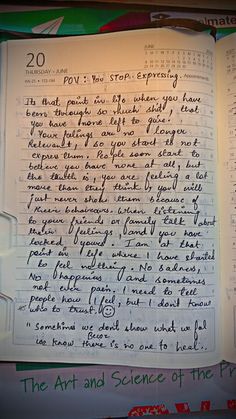 20
THURSDAY • JUNE
JUNE
POV: You STOP. Expressing.
Appointments
Its that point in life when you have
been through so much shit, that
you have none left to give.
Your feelings are no longer
Relevant, so you start to not
express them. People soon start to
believe you have none at all, but
the truth is, you are feeling a lot
more than they think, you will
just never show them because of
their behaviours. When listening
to your friend or family talk about
their feelings, and you have
locked yours. I am at that
point in life where I have started
to feel nothing. No sadness,
No happiness and sometimes
not even pain. I need to tell
people how I feel, but I don't know
who to trust.
" Sometimes we don't show what we feel
we know there is no one to heal..
The Art and Science of the Pr